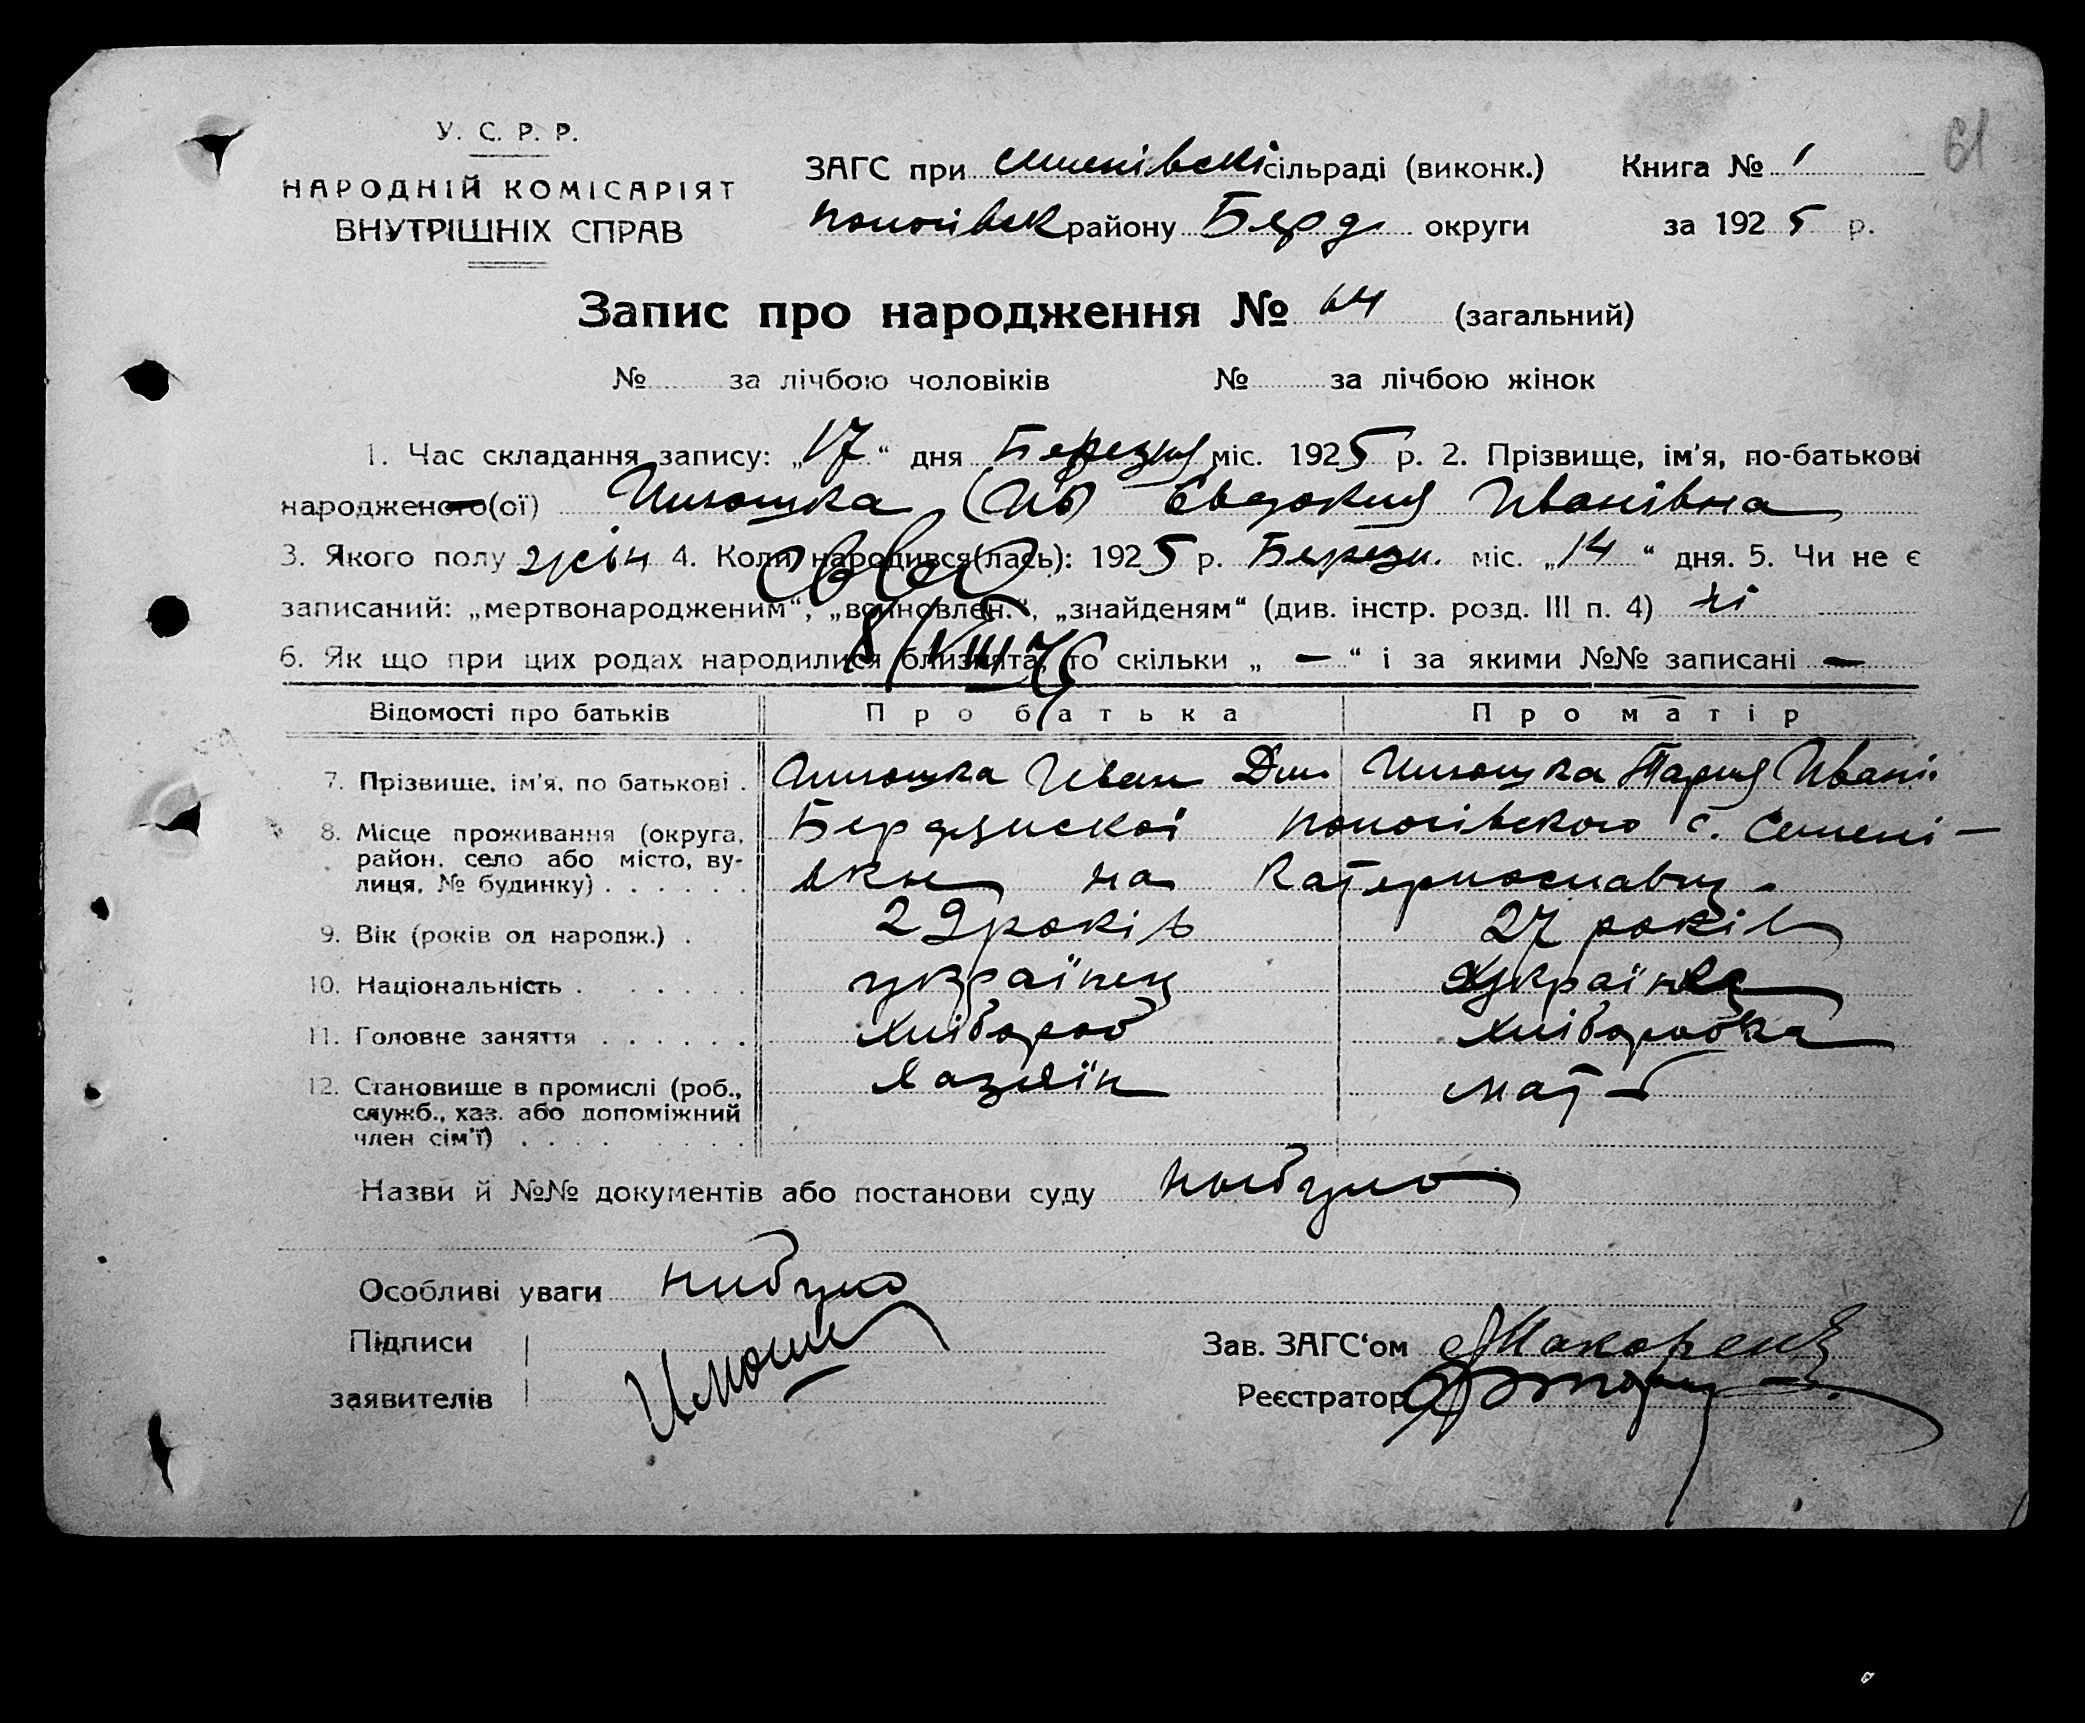 61
У. С. Р. Р.
НАРОДНІЙ КОМІСАРІЯТ
ВНУТРІШНІХ СПРАВ
ЗАГС при Семенівскі сільраді (виконк.) Книга № 1
пологівск району Берд. округи за 1925 р.
Запис про народження № 64 (загальний)
№ за лічбою чоловіків № за лічбою жінок
1. Час складання запису: „17“ дня Березня міс. 1925 р. 2. Прізвище, ім'я, по-батькові
народженого(ої) Євдокия Ивановна
3. Якого полу жін 4. Коли народився(лась): 1925 р. Березн. міс. „14“ дня. 5. Чи не є
записаний: „мертвонародженим“, „воиновлен.“, „знайденям“ (див. інстр. розд. III п. 4) ні
8/VIII 76
6. Як що при цих родах народилися близнята, то скільки „ — “ і за якими №№ записані —
Відомості про батьків Про батька Про матір
7. Прізвище, ім'я, по батькові . Иван Дм. Мария Ивані.
8. Місце проживання (округа, район, село або місто, вулиця, № будинку) . . . . . . Бердянскої пологівского с. Семені-
вкы на Катеринославщ.
9. Вік (років од народж.) . 29 років 27 років
10. Національність . . . . . . українец українка
11. Головне заняття . . . . . . хлібороб хлібаробка
12. Становище в промислі (роб., служб., хаз. або допоміжний член сім'ї) . . . . . . хазяїн мать
Назви й №№ документів або постанови суду небуло
Особливі уваги нибуло
Підписи
заявителів
Зав. ЗАГС'ом
Реєстратор